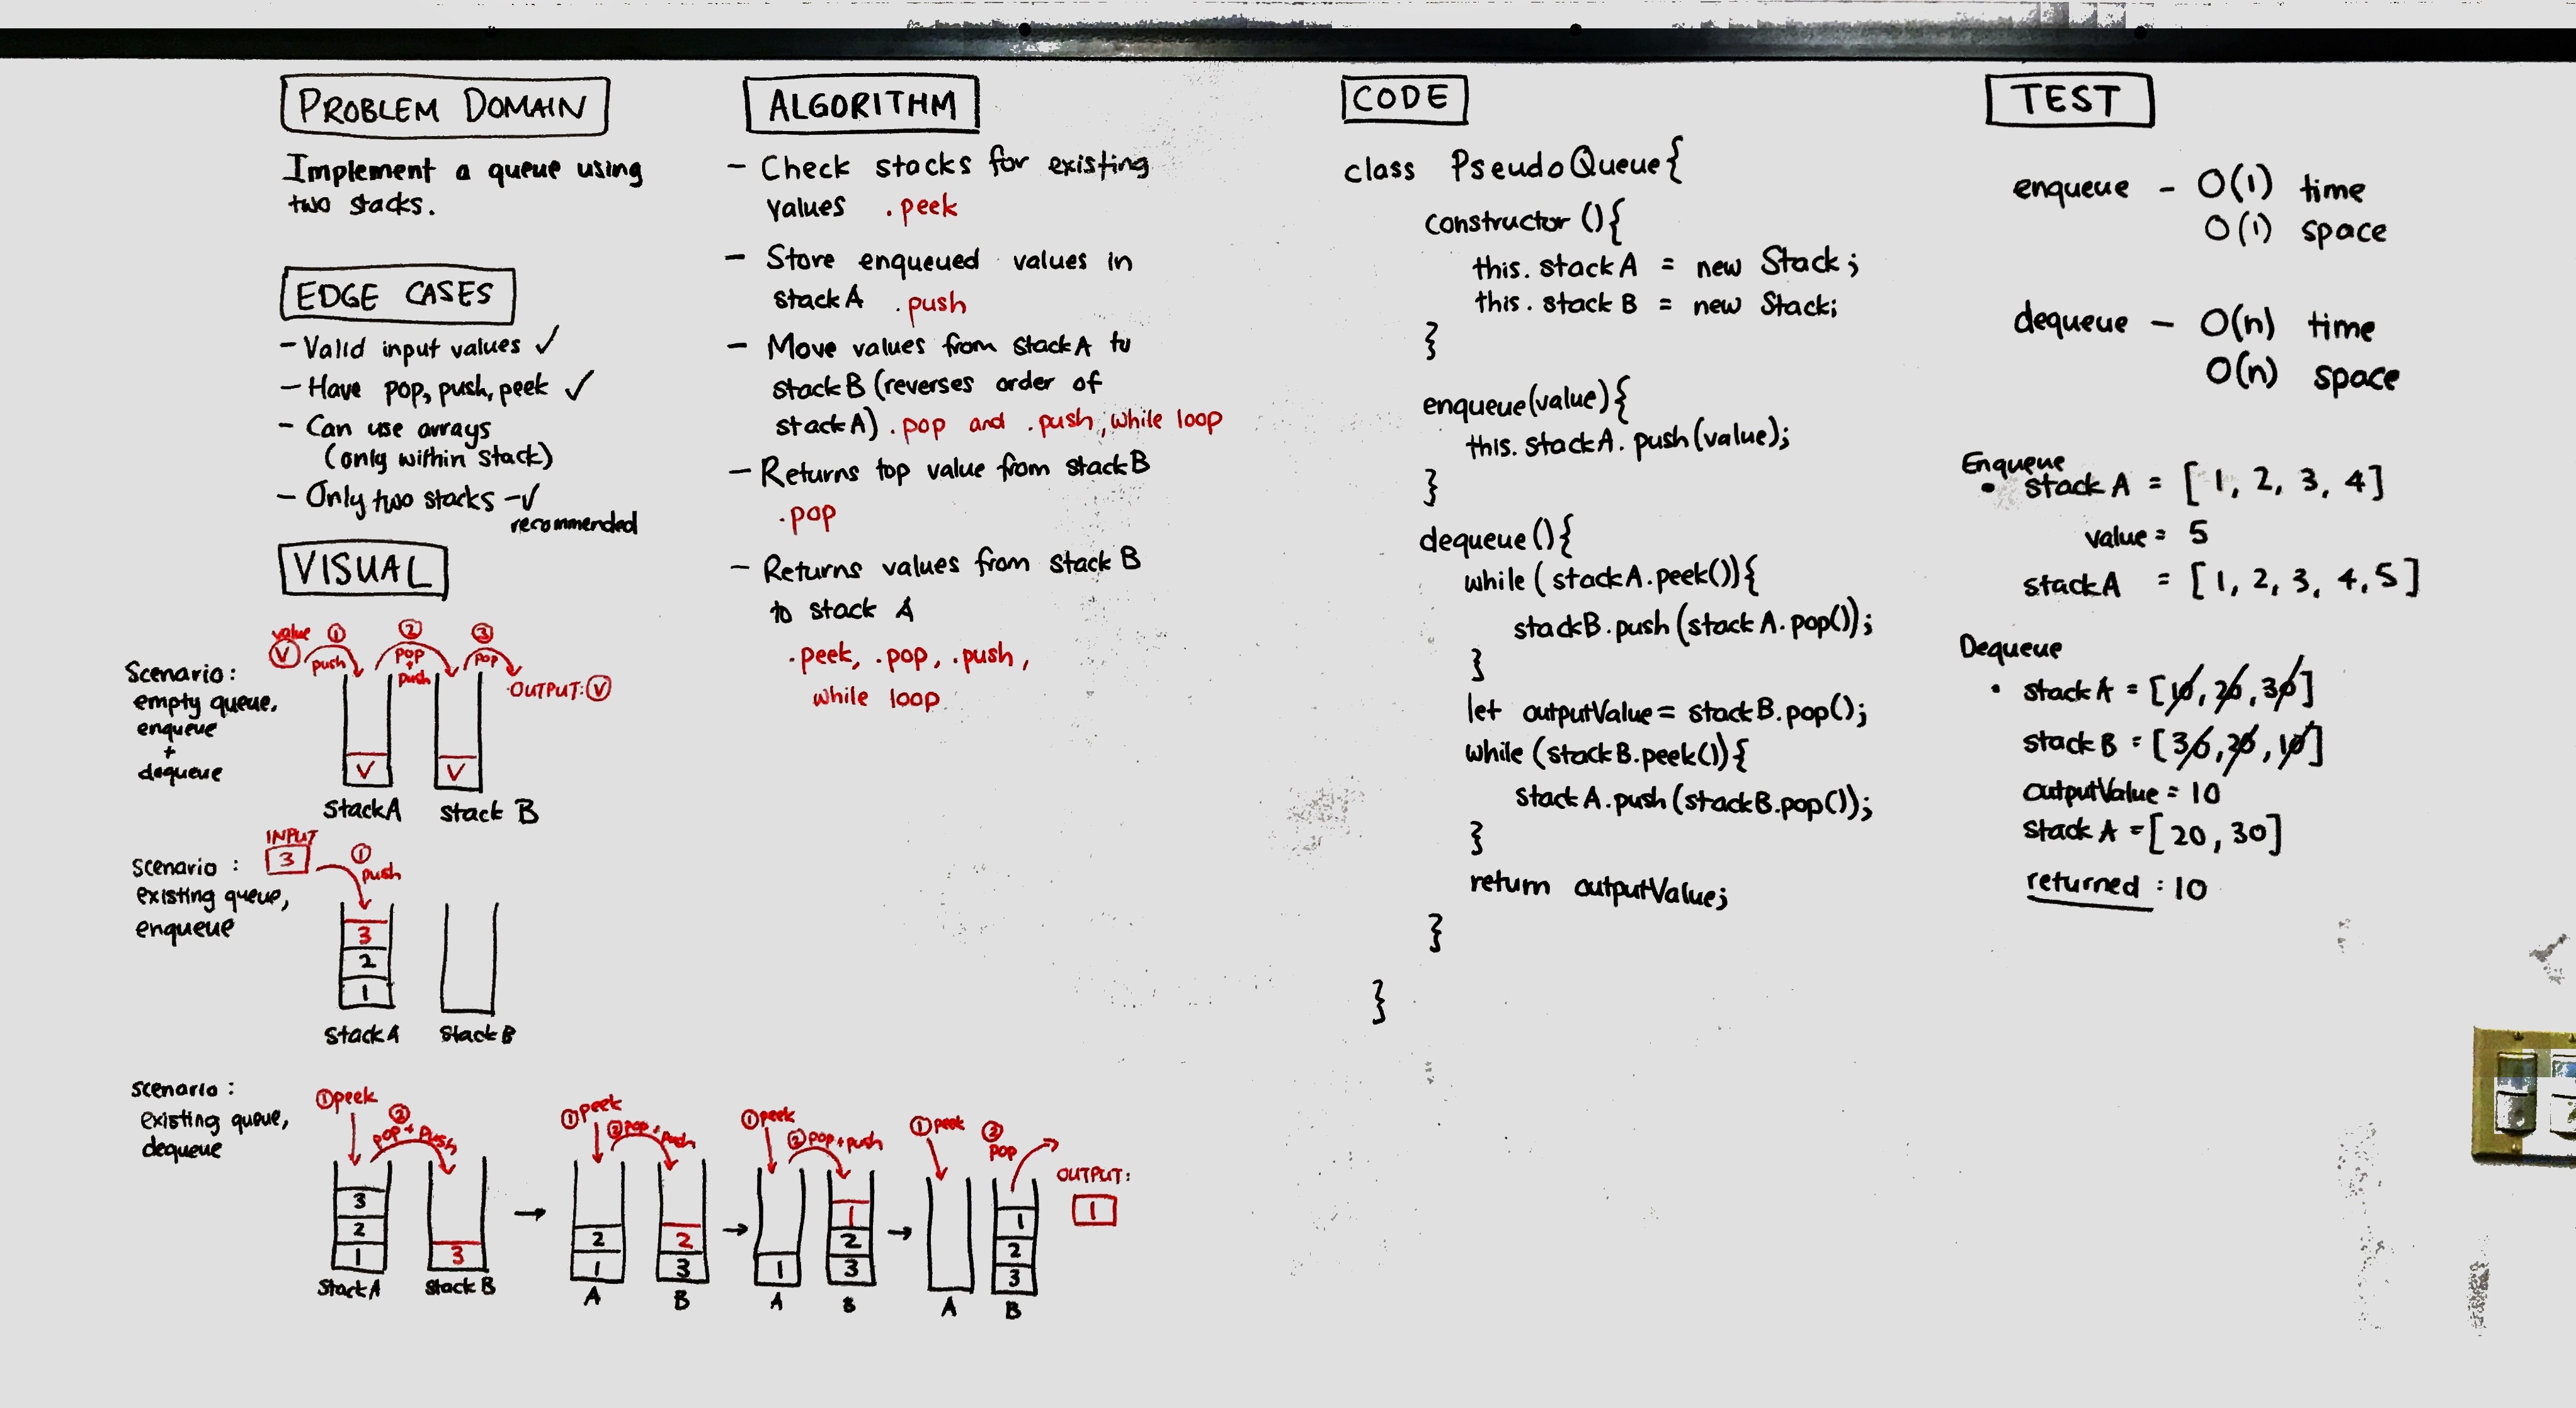 PROBLEM DOMAIN
Implement a queue using
two stacks.
EDGE CASES
- Valid input values ✓
- Have pop, push, peek ✓
- Can use arrays
(only within stack)
- Only two stacks -✓
recommended
VISUAL
Scenario:
empty queue,
enqueue
+
dequeue
value
V
① push
② pop + push
③ pop
OUTPUT: V
V
V
stack A
stack B
scenario :
existing queue,
enqueue
INPUT
3
① push
3
2
1
stack A
stack B
scenario :
existing queue,
dequeue
① peek
② pop + push
3
2
1
3
stack A
stack B
→
① peek
② pop + push
2
1
2
3
A
B
→
① peek
② pop + push
1
1
2
3
A
B
→
① peek
③ pop
1
2
3
A
B
OUTPUT:
1
ALGORITHM
- Check stacks for existing
values .peek
- Store enqueued values in
stack A .push
- Move values from stack A to
stack B (reverses order of
stack A) .pop and .push, while loop
- Returns top value from stack B
.pop
- Returns values from stack B
to stack A
.peek, .pop, .push,
while loop
CODE
class PseudoQueue{
constructor (){
this. stack A = new Stack;
this. stack B = new Stack;
}
enqueue(value){
this. stackA. push(value);
}
dequeue (){
while ( stackA.peek()){
stackB.push (stack A.pop());
}
let outputValue = stack B.pop();
while (stackB.peek()){
stack A.push (stackB.pop());
}
return outputValue;
}
}
TEST
enqueue - O(1) time
O(1) space
dequeue - O(n) time
O(n) space
Enqueue
• stack A = [1, 2, 3, 4]
value = 5
stackA = [1, 2, 3, 4, 5]
Dequeue
• stack A = [10, 20, 30]
stack B = [30, 20, 10]
outputValue = 10
stack A = [20, 30]
returned : 10